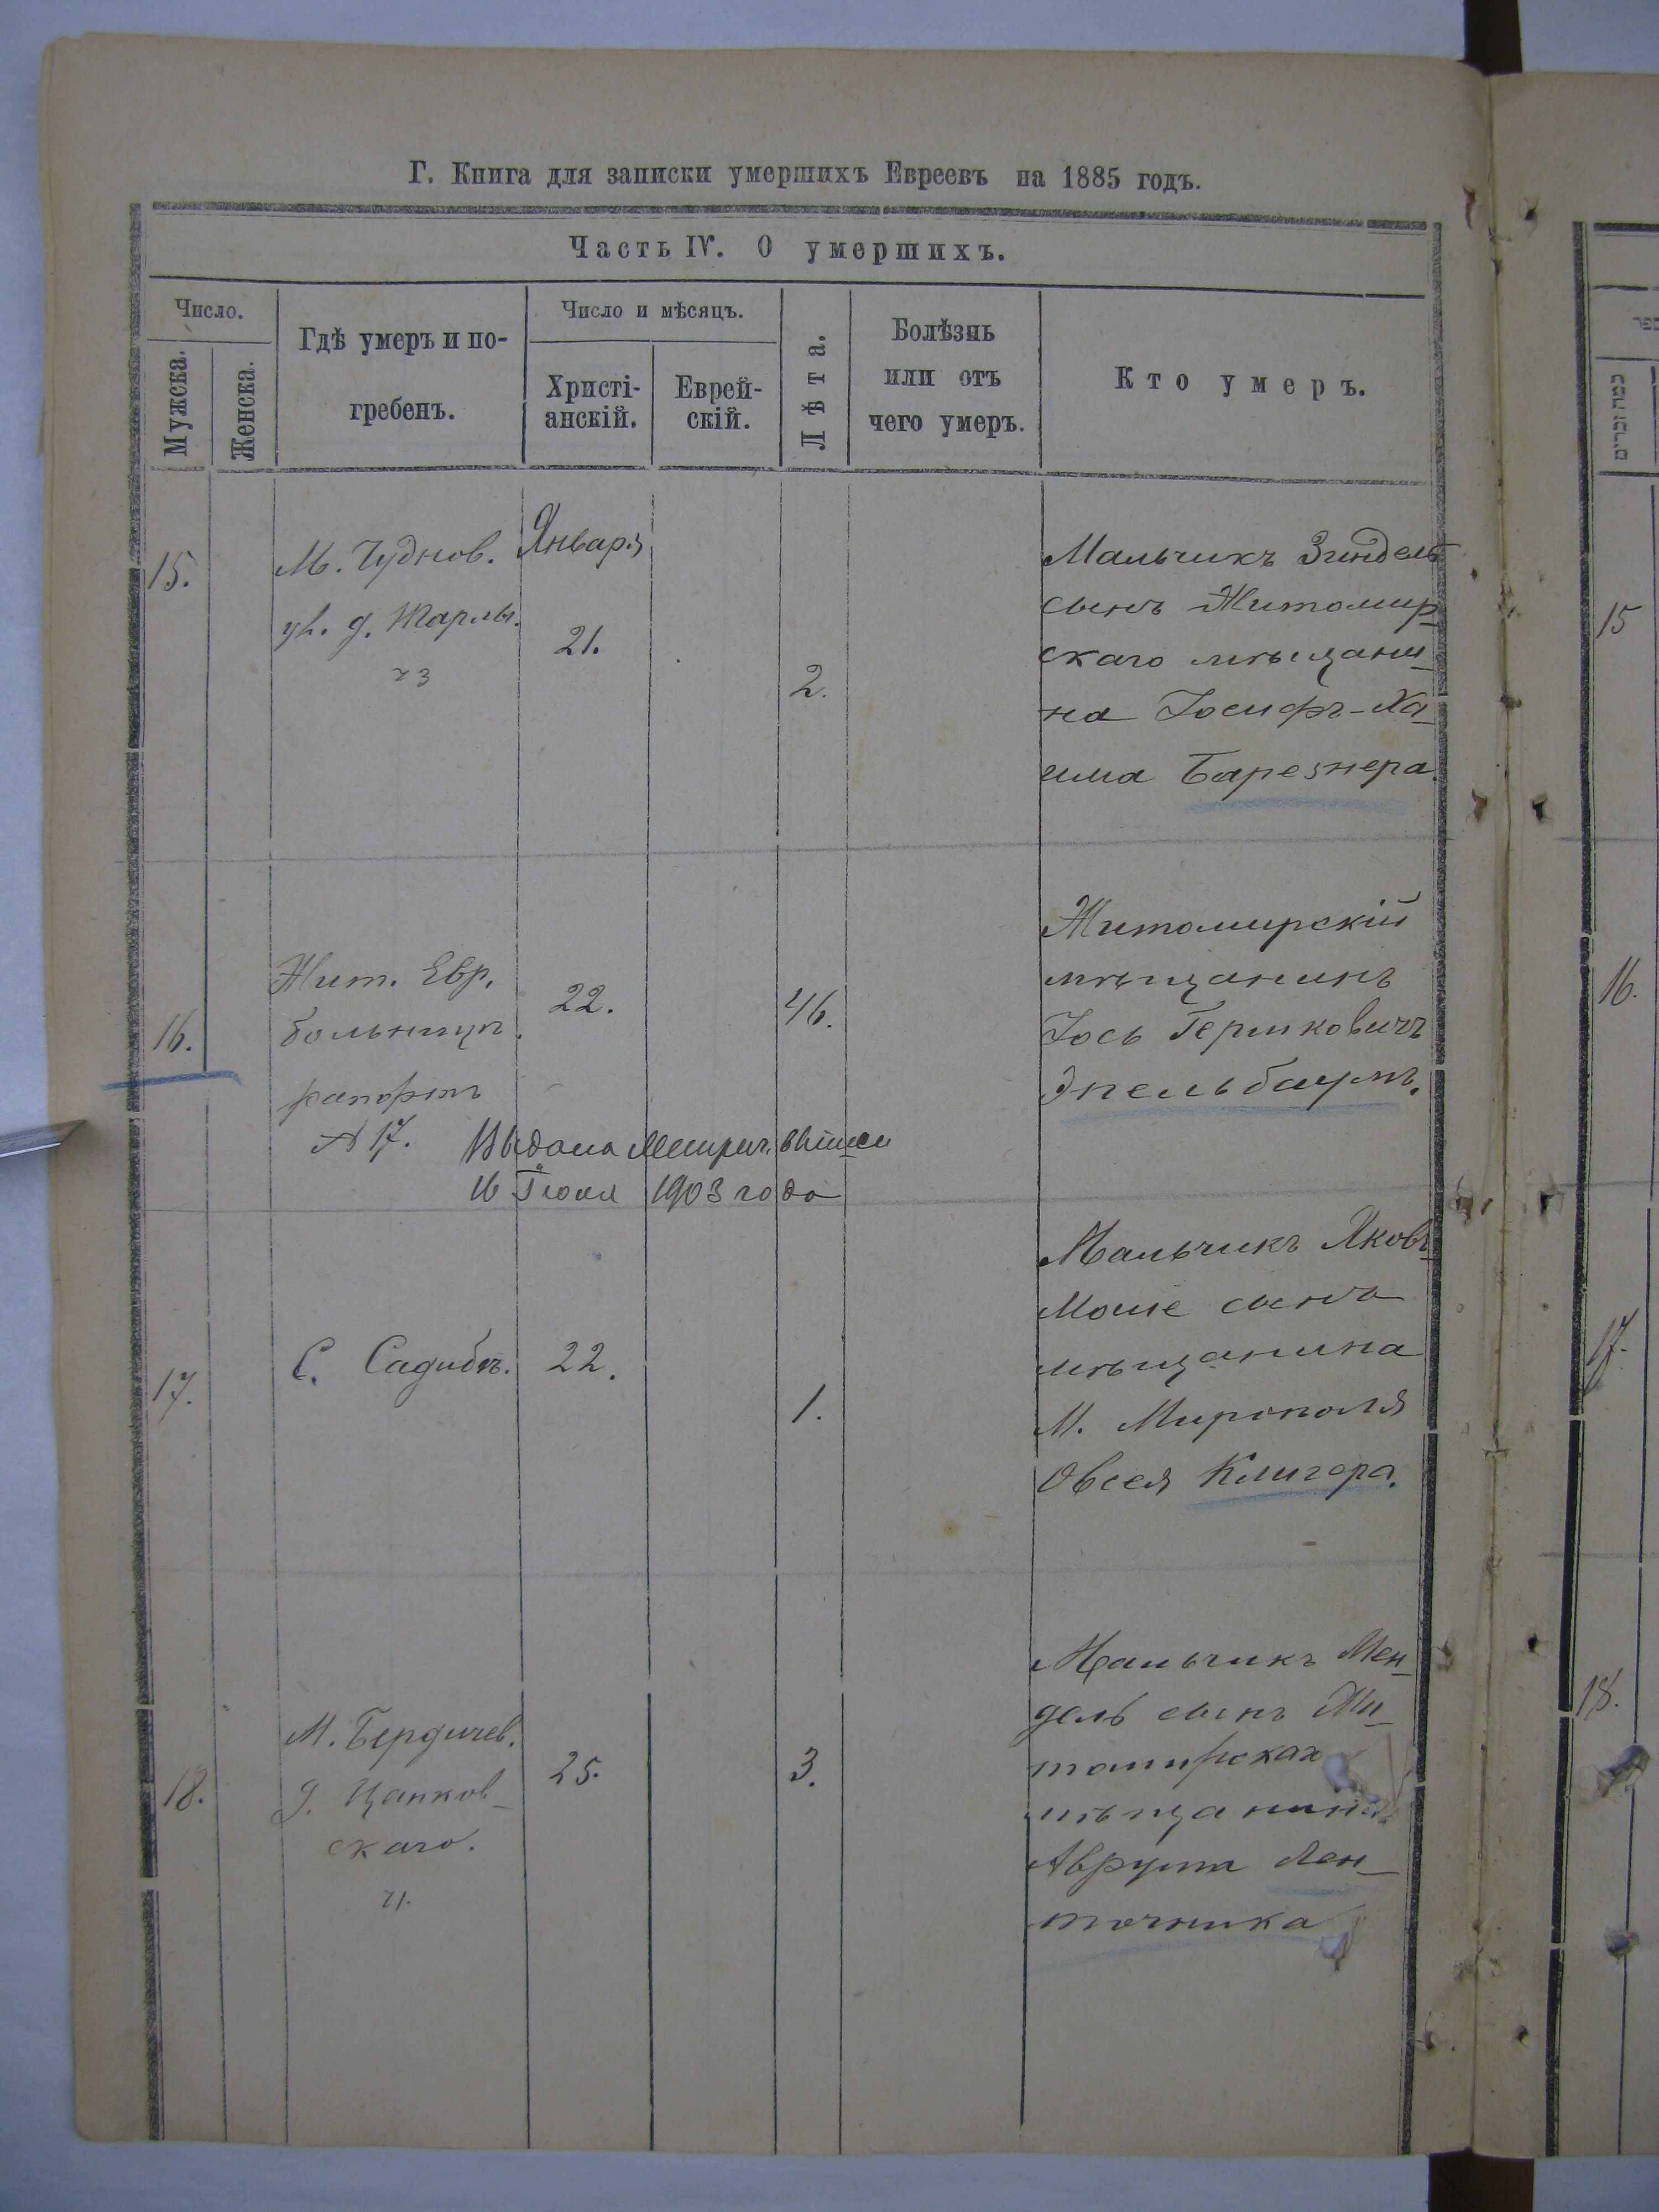 Г. Книга для записки умершихъ Евреевъ на 1885 годъ.
Часть IV. О умершихъ.
Число.
Мужска.
Женска.
Гдѣ умеръ и по-
гребенъ.
Число и мѣсяцъ.
Христі-
анскій.
Еврей-
скій.
Лѣта.
Болѣзнь
или отъ
чего умеръ.
Кто умеръ.
15.
М. Чуднов.
ул. д.
23
Января
21.
2.
Мальчикъ Зиндель
сынъ Житомир
скаго мѣщани
на Іосифъ-Ха
има Барезнера
16.
Жит. Евр.
больницѣ.
рапортъ
№ 17.
22.
46.
Житомирскій
мѣщанинъ
Іось Гершковичъ
Эпельбаумъ.
Выдана Метрич.
16 Іюля 1903 года
17.
С. Садибѣ.
22.
1.
Мальчикъ Яковъ
Моше сынъ
мѣщанина
М. Мирополя
Овсея Клигера.
18.
М. Бердичев.
д. Цапков
скаго.
21.
25.
3.
Мальчикъ Мен
дель сынъ Жи
томирскаго
мѣщанина
Аврума Лен
точника
15
16.
17.
18.